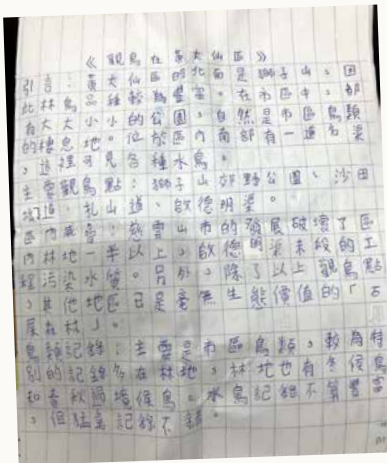 《觀鳥在黃大仙區》
引言：黃大仙區的北面是獅子山，因
此林鳥品種較為豐富。在市區中，都
有大大小小的公園，自然是市區鳥類
的棲息地。位於區內南部有一道明渠
，這裡可見各種水鳥。
主要觀鳥點：獅子山郊野公園、沙田
坳道、扎山道、啟德明渠。
區內威脅：慈雲山市的發展破壞了區
內林地一半以上，啟德明渠末段的工
程污染水質。另外，除了以上觀鳥點
，其他地區已是毫無生態價值的「石
屎森林」。
鳥類記錄：主要是市區鳥類，較為特
別的記錄多在林地，林地也有冬候鳥
和春秋過境候鳥。水鳥記錄不算豐富
，但猛禽記錄不錯。